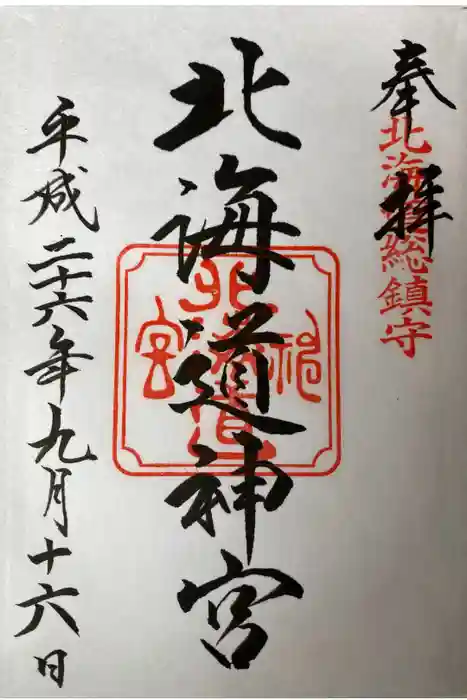 奉拝
北海道総鎮守
北海道神宮
北海道神宮
平成二十六年九月十六日